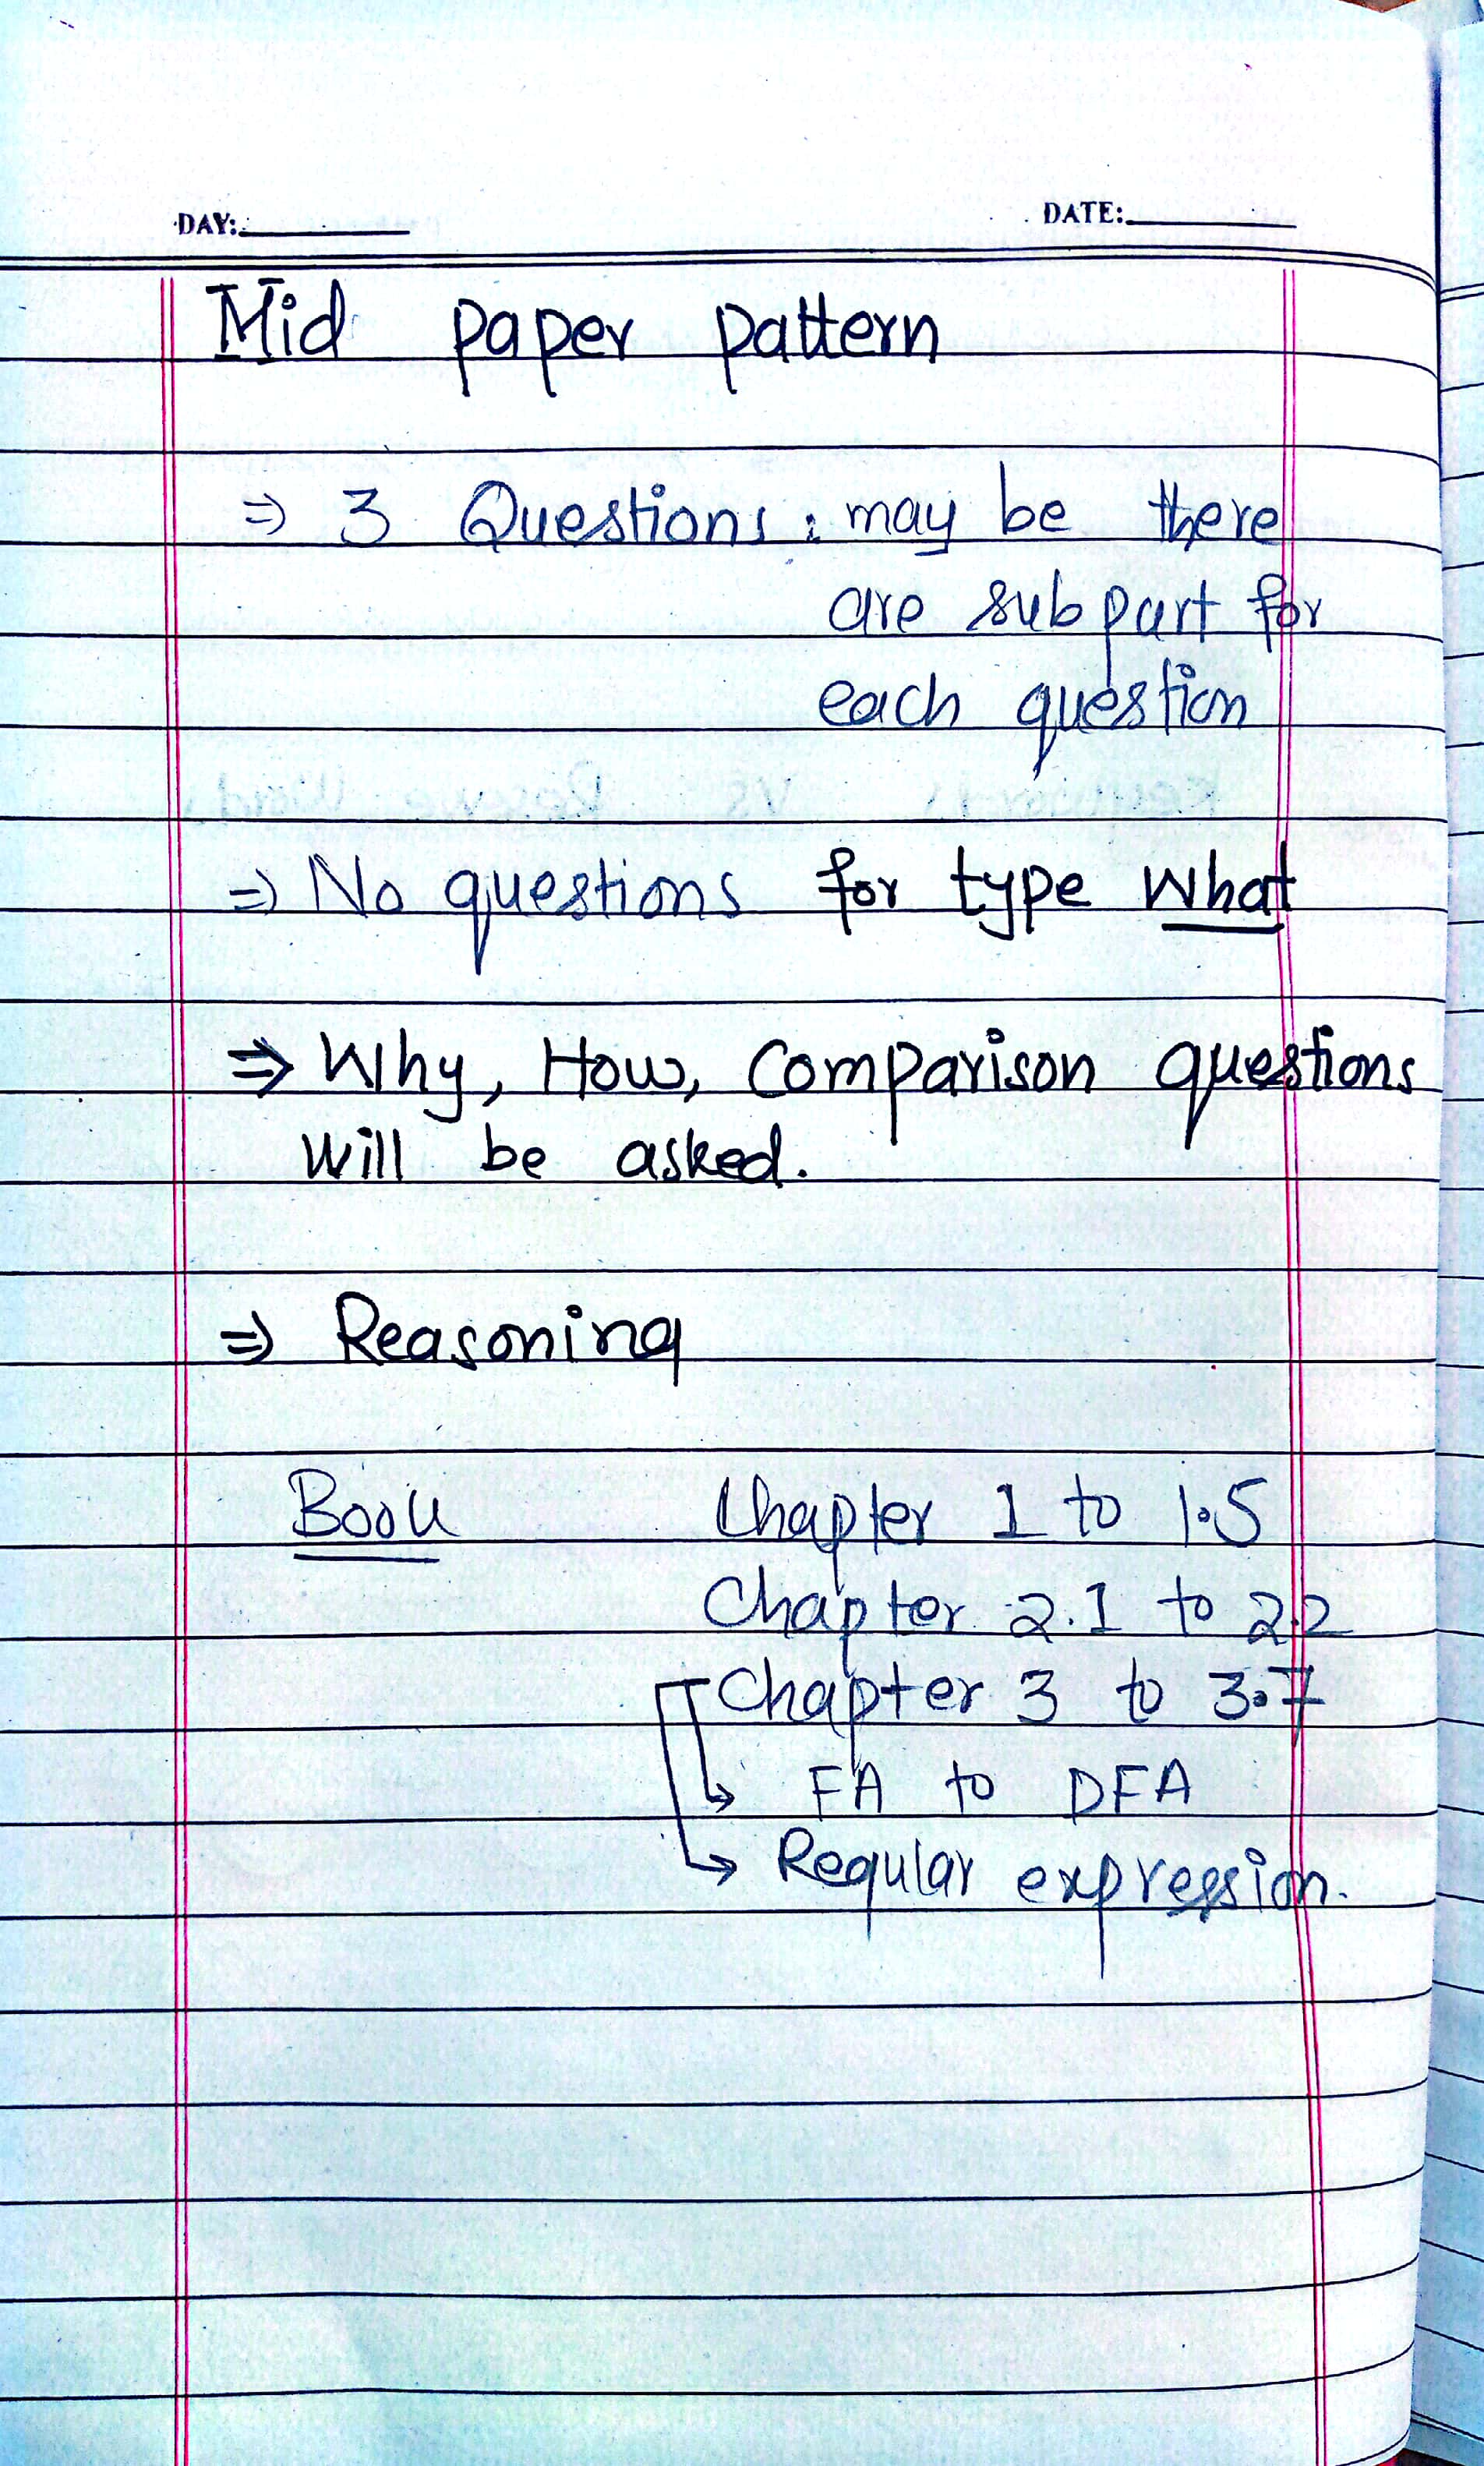 DAY: DATE:
Mid paper pattern
⇒ 3 Questions : may be there
are sub part for
each question
⇒ No questions for type What
⇒ Why, How, Comparison questions
Will be asked.
⇒ Reasoning
Book Chapter 1 to 1.5
Chapter 2.1 to 2.2
Chapter 3 to 3.7
↳ FA to DFA
↳ Regular expression.